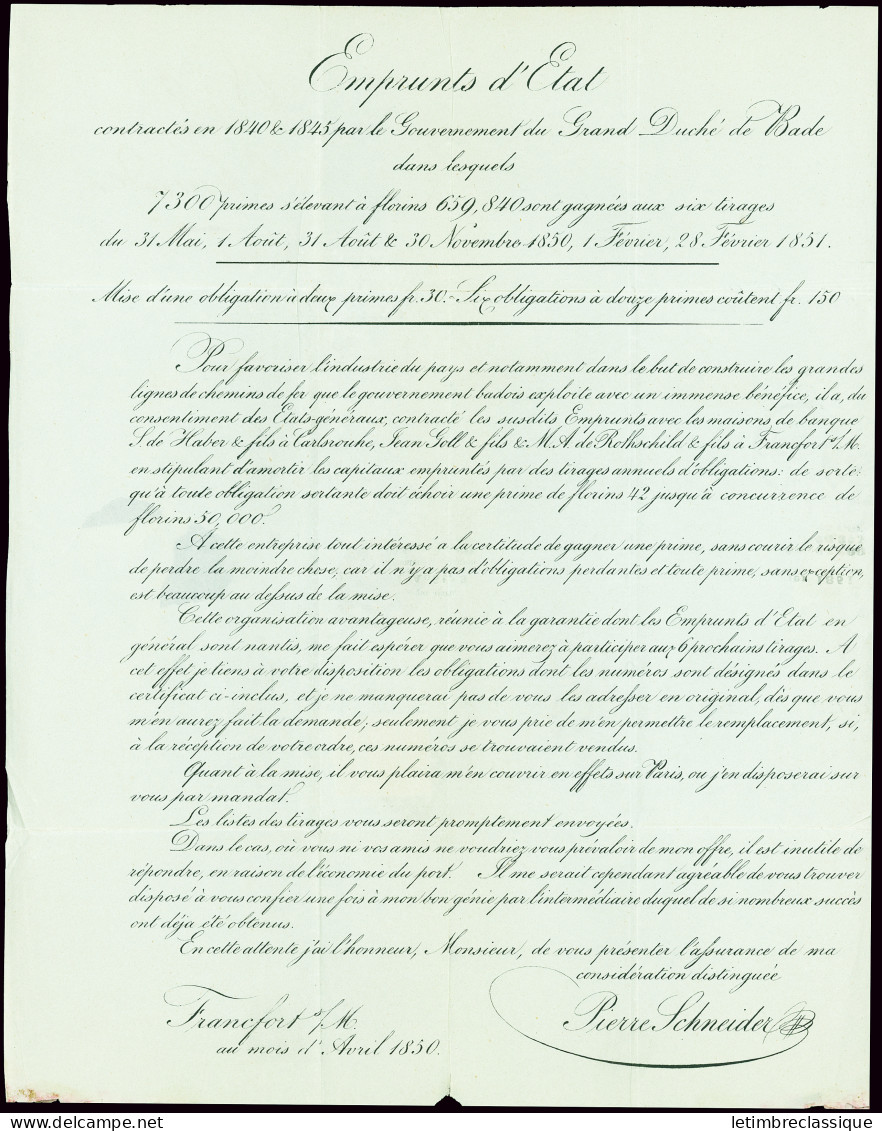 Emprunts d'Etat
contractés en 1840 & 1845 par le Gouvernement du Grand Duché de Bade
dans lesquels
7300 primes s'élevant à florins 659,840 sont gagnées aux six tirages
du 31 Mai, 1 Août, 31 Août & 30 Novembre 1850, 1 Février, 28 Février 1851.
Mise d'une obligation à deux primes fr. 30.- Six obligations à douze primes coûtent fr. 150
Pour favoriser l'industrie du pays et notamment dans le but de construire les grandes
lignes de chemins de fer que le gouvernement badois exploite avec un immense bénéfice, il a, du
consentiment des Etats-généraux, contracté les susdits Emprunts avec les maisons de banque
S. de Haber & fils à Carlsrouhe, Jean Goll & fils & M. A. de Rothschild & fils à Francfort s/M.
en stipulant d'amortir les capitaux empruntés par des tirages annuels d'obligations: de sorte
qu'à toute obligation sortante doit échoir une prime de florins 42 jusqu'à concurrence de
florins 50,000.
A cette entreprise tout intéressé a la certitude de gagner une prime, sans courir le risque
de perdre la moindre chose, car il n'y a pas d'obligations perdantes et toute prime, sans exception,
est beaucoup au dessus de la mise.
Cette organisation avantageuse, réunie à la garantie dont les Emprunts d'Etat en
général sont nantis, me fait espérer que vous aimerez à participer aux 6 prochains tirages. A
cet effet je tiens à votre disposition les obligations dont les numéros sont désignés dans le
certificat ci-inclus, et je ne manquerai pas de vous les adresser en original, dès que vous
m'en aurez fait la demande; seulement je vous prie de m'en permettre le remplacement, si,
à la réception de votre ordre, ces numéros se trouvaient vendus.
Quant à la mise, il vous plaira m'en couvrir en effets sur Paris, ou j'en disposerai sur
vous par mandat.
Les listes des tirages vous seront promptement envoyées.
Dans le cas, où vous ni vos amis ne voudriez vous prévaloir de mon offre, il est inutile de
répondre, en raison de l'économie du port. Il me serait cependant agréable de vous trouver
disposé à vous confier une fois à mon bon génie par l'intermédiaire duquel de si nombreux succès
ont déja été obtenus.
En cette attente j'ai l'honneur, Monsieur, de vous présenter l'assurance de ma
considération distinguée
Pierre Schneider
Francfort s/M.
au mois d'Avril 1850.
letimbreclassique